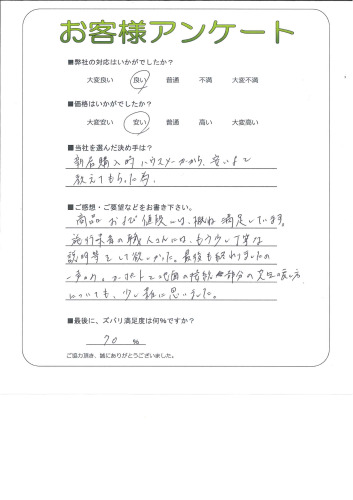 お客様アンケート
■弊社の対応はいかがでしたか？
大変良い 良い 普通 不満 大変不満
■価格はいかがでしたか？
大変安い 安い 普通 高い 大変高い
■当社を選んだ決め手は？
新居購入時 ハウスメーカーから、安いよと
教えてもらった為。
■ご感想・ご要望などをお書き下さい。
商品 および 値段には、概ね 満足しています。
施行業者の職人さんには、もう少し丁寧な
説明等をして欲しかった。最後も終わりましたの
一声のみ。カーポートと地面の接続部分の
についても、少し雑に思いました。
■最後に、ズバリ満足度は何%ですか？
70 %
ご協力頂き、誠にありがとうございました。